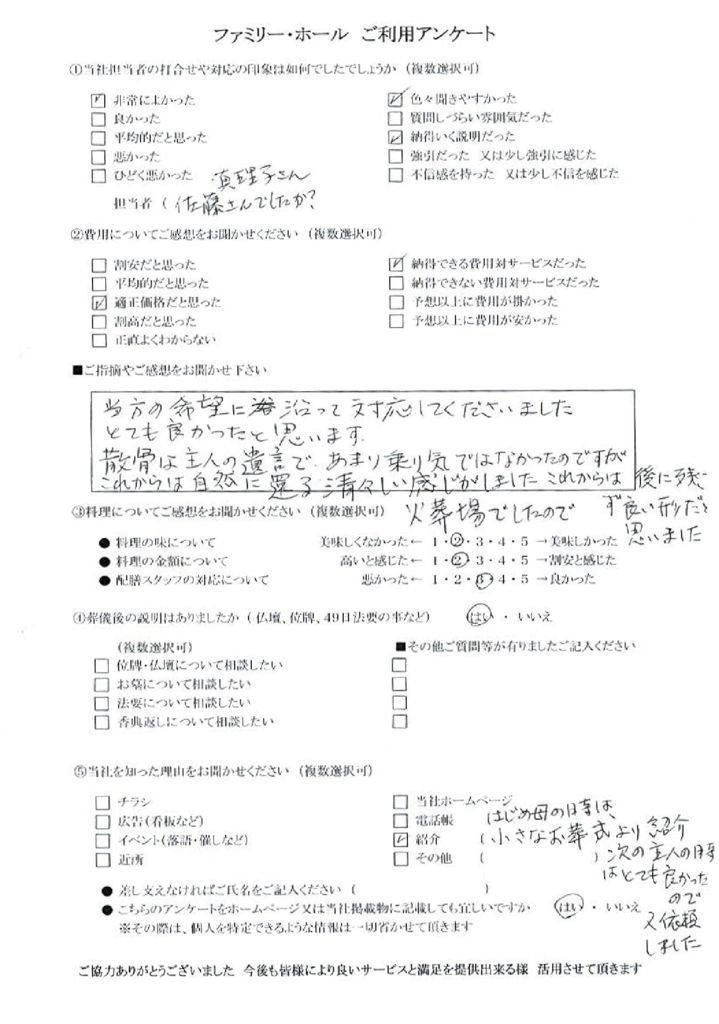 ファミリー・ホール ご利用アンケート
①当社担当者の打合せや対応の印象は如何でしたでしょうか（複数選択可）
☑ 非常によかった ☑ 色々聞きやすかった
□ 良かった □ 質問しづらい雰囲気だった
□ 平均的だと思った ☑ 納得いく説明だった
□ 悪かった □ 強引だった 又は少し強引に感じた
□ ひどく悪かった 真理子さん □ 不信感を持った 又は少し不信を感じた
担当者（佐藤さんでしたか?
②費用についてご感想をお聞かせください（複数選択可）
□ 割安だと思った ☑ 納得できる費用対サービスだった
□ 平均的だと思った □ 納得できない費用対サービスだった
☑ 適正価格だと思った □ 予想以上に費用が掛かった
□ 割高だと思った □ 予想以上に費用が安かった
□ 正直よくわからない
■ご指摘やご感想をお聞かせ下さい
当方の希望に沿って対応してくださいました
とても良かったと思います.
散骨は主人の遺言で、あまり乗り気ではなかったのですが
これからは自然に還る清々しい感じがしました これからは 後に残
火葬場でしたので ず良い形だと
思いました
③料理についてご感想をお聞かせください（複数選択可）
● 料理の味について 美味しくなかった← 1・②・3・4・5 →美味しかった
● 料理の金額について 高いと感じた← 1・②・3・4・5 →割安と感じた
● 配膳スタッフの対応について 悪かった← 1・2・③・4・5 →良かった
④葬儀後の説明はありましたか（仏壇、位牌、49日法要の事など） はい・いいえ
（複数選択可） ■その他ご質問等が有りましたご記入ください
□ 位牌・仏壇について相談したい □
□ お墓について相談したい □
□ 法要について相談したい □
□ 香典返しについて相談したい □
⑤当社を知った理由をお聞かせください（複数選択可）
□ チラシ □ 当社ホームページ
□ 広告（看板など） □ 電話帳 はじめ母の時は、
□ イベント（落語・催しなど） ☑ 紹介 （小さなお葬式より紹介
□ 近所 □ その他 （ ）次の主人の時
はとても良かった
ので
又依頼
しました
● 差し支えなければご氏名をご記入ください（ ）
● こちらのアンケートをホームページ又は当社掲載物に記載しても宜しいですか はい・いいえ
※その際は、個人を特定できるような情報は一切省かせて頂きます
ご協力ありがとうございました 今後も皆様により良いサービスと満足を提供出来る様 活用させて頂きます